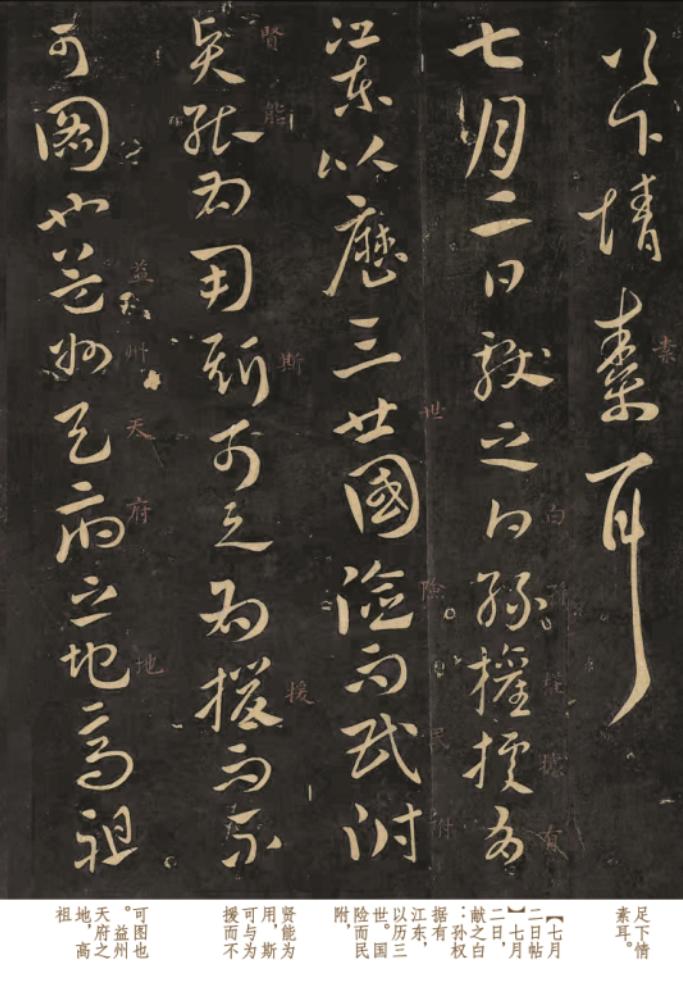 足下情素耳
素
七月二日獻之白孫權據有
白孫權據有
江東以歷三世國險而民附
世險民附
賢能為用斯可與為援而不
賢能斯援
可圖也益州天府之地高祖
益州天府地
足下情
素耳。
【七月
二日帖
】七月
二日，
献之白
：孙权
据有
江东，
以历三
世。国
险而民
附，
贤能为
用，斯
可与为
援而不
可图也
。益州
天府之
地，高
祖